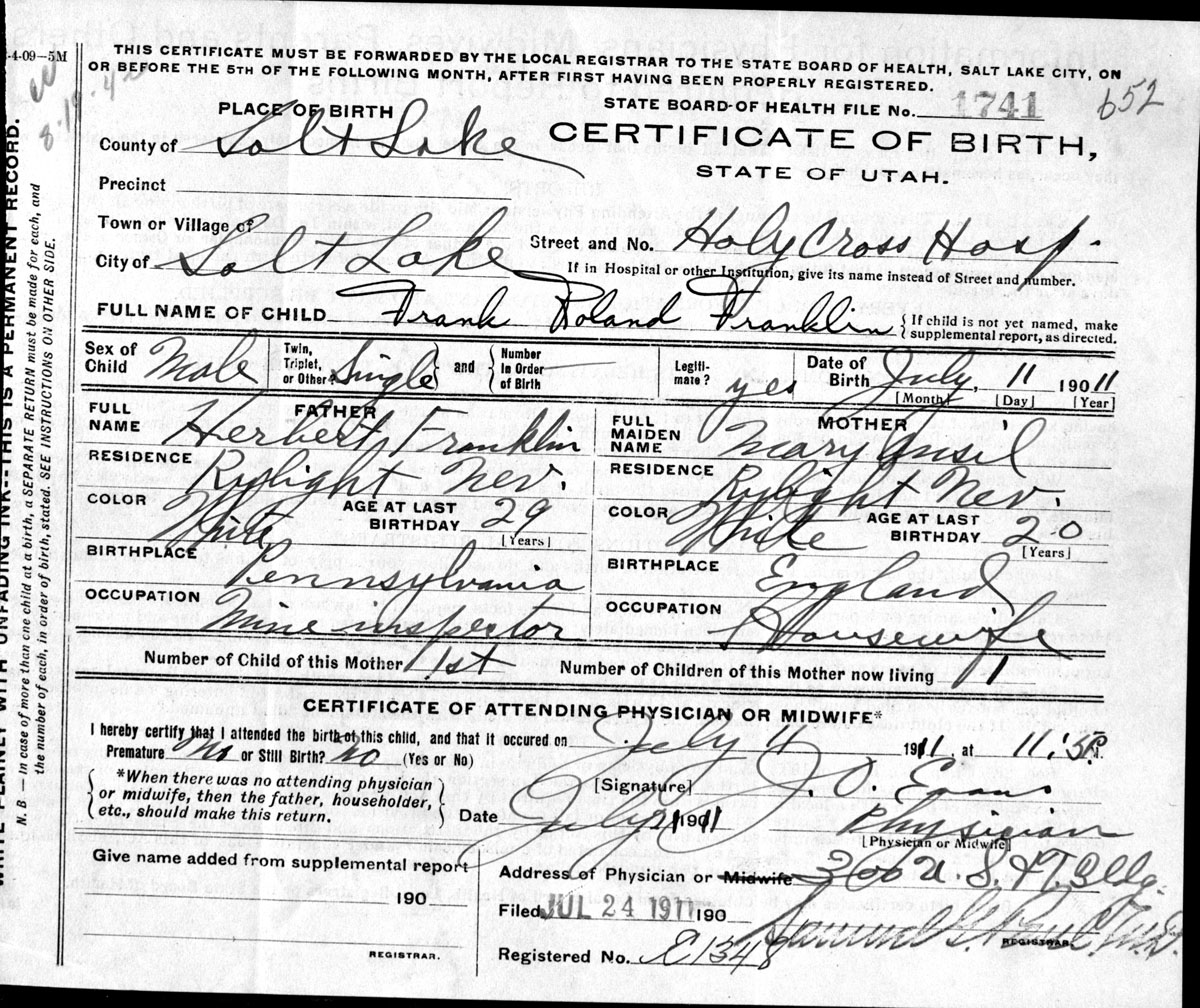 -4-09-5M
THIS CERTIFICATE MUST BE FORWARDED BY THE LOCAL REGISTRAR TO THE STATE BOARD OF HEALTH, SALT LAKE CITY, ON
OR BEFORE THE 5TH OF THE FOLLOWING MONTH, AFTER FIRST HAVING BEEN PROPERLY REGISTERED.
8-19-4
STATE BOARD OF HEALTH FILE No. 1741 652
PLACE OF BIRTH
County of Salt Lake
CERTIFICATE OF BIRTH,
STATE OF UTAH.
Precinct
Town or Village of
Street and No. Holy Cross Hosp.
City of Salt Lake
If in Hospital or other Institution, give its name instead of Street and number.
FULL NAME OF CHILD Frank Roland Franklin { If child is not yet named, make
supplemental report, as directed.
Sex of Child Male Twin, Triplet, or Other? Single and Number in Order of Birth Legiti- mate? yes Date of Birth July, 11 190 11
[Month] [Day] [Year
FATHER
FULL NAME Herbert Franklin
RESIDENCE Rylight Nev.
COLOR White AGE AT LAST BIRTHDAY 29
[Years]
BIRTHPLACE Pennsylvania
OCCUPATION Mine inspector
MOTHER
FULL MAIDEN NAME Mary
RESIDENCE Rylight Nev.
COLOR White AGE AT LAST BIRTHDAY 20
[Years]
BIRTHPLACE England
OCCUPATION Housewife
Number of Child of this Mother 1st Number of Children of this Mother now living 1
CERTIFICATE OF ATTENDING PHYSICIAN OR MIDWIFE*
I hereby certify that I attended the birth of this child, and that it occured on July 11 1911, at 11:
Premature no or Still Birth? no (Yes or No)
*When there was no attending physician
or midwife, then the father, householder,
etc., should make this return.
[Signature] J. O. Evans
Date July 1911 Physician
[Physician or Midwife]
Give name added from supplemental report
190
REGISTRAR.
Address of Physician or Midwife
Filed JUL 24 1911 190
REGISTRAR.
Registered No. E1348
WRITE PLAINLY WITH UNFADING INK--THIS IS A PERMANENT RECORD.
N. B. — In case of more than one child at a birth, a SEPARATE RETURN must be made for each, and
the number of each, in order of birth, stated. SEE INSTRUCTIONS ON OTHER SIDE.